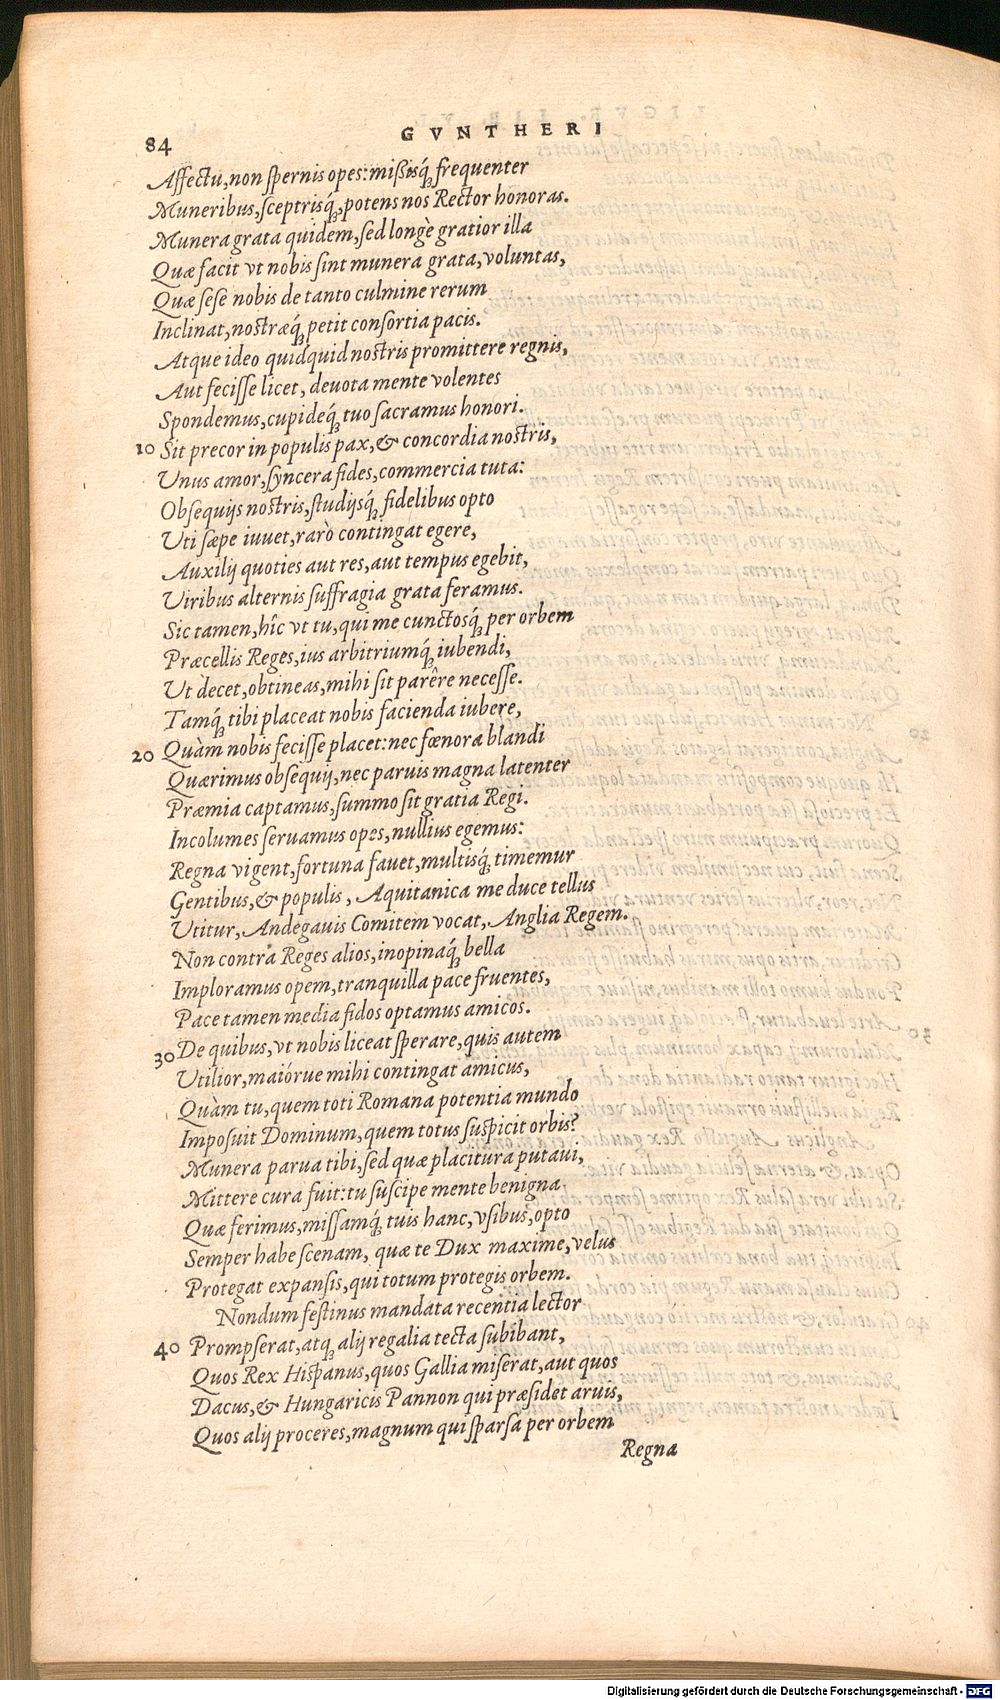 84
GVNTHERI
Affectu, non ſpernis opes: miſsisq́; frequenter
Muneribus, ſceptrisq́;, potens nos Rector honoras.
Munera grata quidem, ſed longè gratior illa
Quæ facit vt nobis ſint munera grata, voluntas,
Quæ ſeſe nobis de tanto culmine rerum
Inclinat, nostræq́; petit conſortia pacis.
Atque ideo quidquid nostris promittere regnis,
Aut feciſſe licet, deuota mente volentes
Spondemus, cupideq́; tuo ſacramus honori.
10 Sit precor in populis pax, & concordia nostris,
Unus amor, ſyncera fides, commercia tuta:
Obſequijs nostris, studijsq́; fidelibus opto
Uti ſæpe iuuet, rarò contingat egere,
Auxilij quoties aut res, aut tempus egebit,
Viribus alternis ſuffragia grata feramus.
Sic tamen, hîc vt tu, qui me cunctosq́; per orbem
Præcellis Reges, ius arbitriumq́; iubendi,
Ut decet, obtineas, mihi ſit parêre neceſſe.
Tamq́; tibi placeat nobis facienda iubere,
20 Quàm nobis feciſſe placet: nec fœnora blandi
Quærimus obſequij, nec paruis magna latenter
Præmia captamus, ſummo ſit gratia Regi.
Incolumes ſeruamus opes, nullius egemus:
Regna vigent, fortuna fauet, multisq́; timemur
Gentibus, & populis, Aquitanica me duce tellus
Utitur, Andegauis Comitem vocat, Anglia Regem.
Non contra Reges alios, inopinaq́; bella
Imploramus opem, tranquilla pace fruentes,
Pace tamen media fidos optamus amicos.
30 De quibus, vt nobis liceat ſperare, quis autem
Utilior, maiórue mihi contingat amicus,
Quàm tu, quem toti Romana potentia mundo
Impoſuit Dominum, quem totus ſuſpicit orbis?
Munera parua tibi, ſed quæ placitura putaui,
Mittere cura fuit: tu ſuſcipe mente benigna
Quæ ferimus, miſſamq́; tuis hanc, vſibus, opto
Semper habe ſcenam, quæ te Dux maxime, velus
Protegat expanſis, qui totum protegis orbem.
Nondum feſtinus mandata recentia lector
40 Prompſerat, atq; alij regalia tecta ſubibant,
Quos Rex Hiſpanus, quos Gallia miſerat, aut quos
Dacus, & Hungaricis Pannon qui præſidet aruis,
Quos alij proceres, magnum qui ſparſa per orbem
Regna
Digitalisierung gefördert durch die Deutsche Forschungsgemeinschaft - DFG